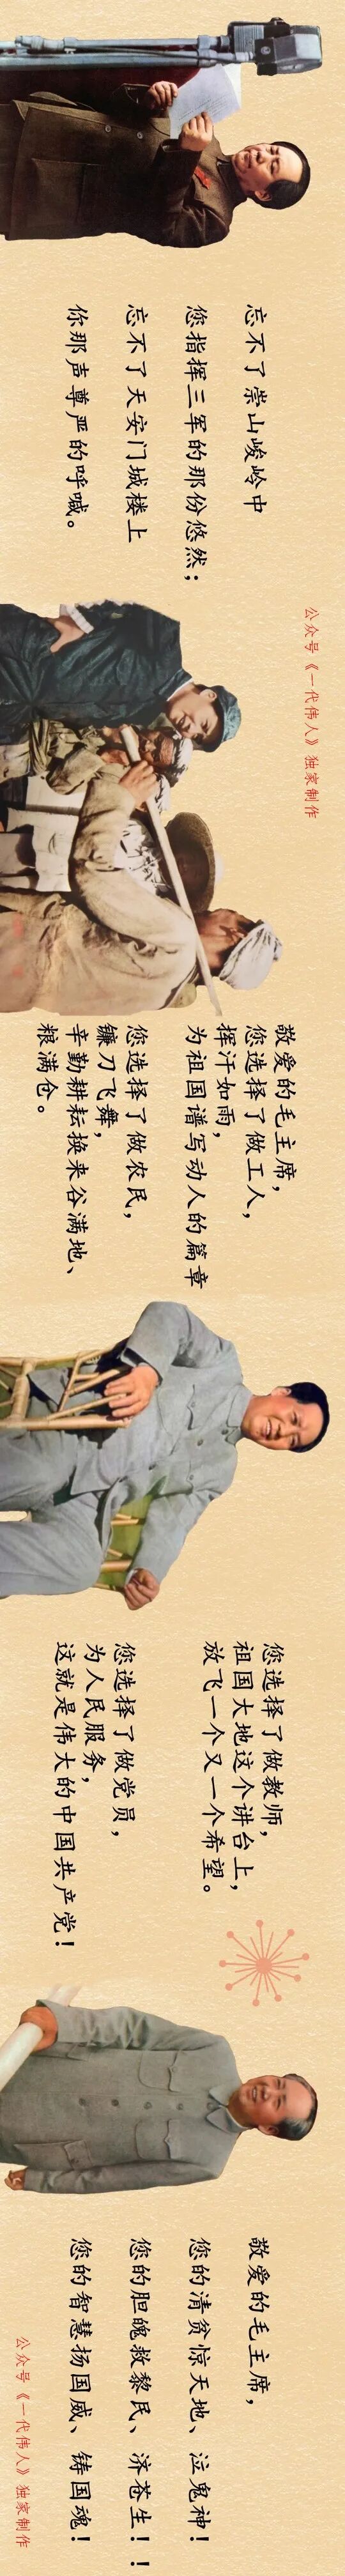 忘不了崇山峻岭中
您指挥三军的那份悠然；
忘不了天安门城楼上
你那声尊严的呼喊。
公众号《一代伟人》独家制作
敬爱的毛主席，
您选择了做工人，
挥汗如雨，
为祖国谱写动人的篇章
您选择了做农民，
镰刀飞舞，
辛勤耕耘换来谷满地、
粮满仓。
您选择了做教师，
祖国大地这个讲台上，
放飞一个又一个希望。
您选择了做党员，
为人民服务，
这就是伟大的中国共产党！
敬爱的毛主席，
您的清贫惊天地、泣鬼神！
您的胆魄救黎民、济苍生！！
您的智慧扬国威、铸国魂！
公众号《一代伟人》独家制作